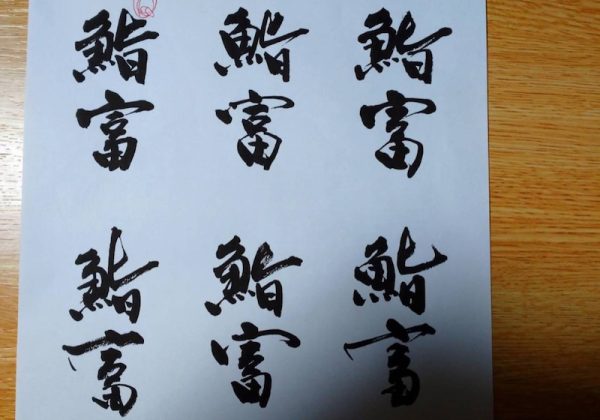 鮨富
鮨富
鮨富
鮨富
鮨富
鮨富